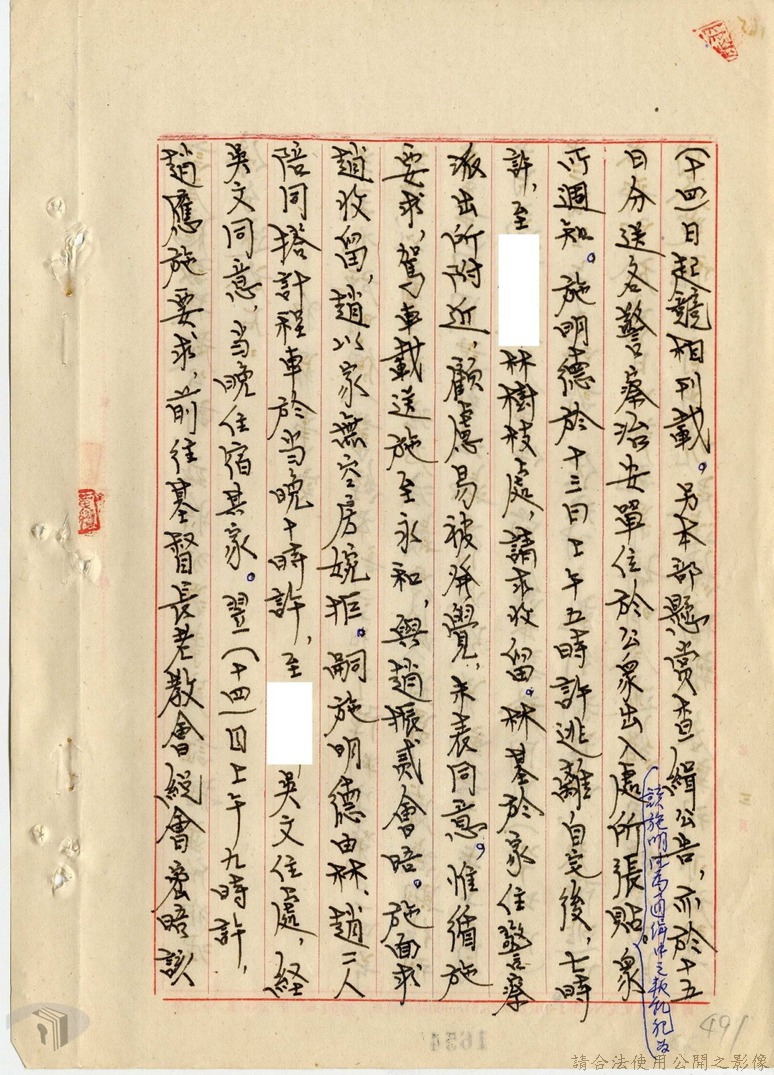 (十四)日起競相刊載。另本部懸賞查緝公告,亦於十五
日分送各警察治安單位於公眾出入處所張貼,眾
該施明德為通緝中之叛亂犯為
所週知。施明德於十三日上午五時許逃離自宅後,七時
許,至 林樹枝處,請求收留。林基於家住警察
派出所附近,顧慮易被發覺,未表同意。惟循施
要求,駕車載送施至永和,與趙振貳會晤。施面求
趙收留,趙以家無空房婉拒。嗣施明德由林、趙二人
陪同搭計程車於当晚十時許,至 吳文住處,経
吳文同意,当晚住宿其家。翌(十四)日上午九時許,
趙應施要求,前往基督長老教會総會晤該
491
1654
請合法使用公開之影像